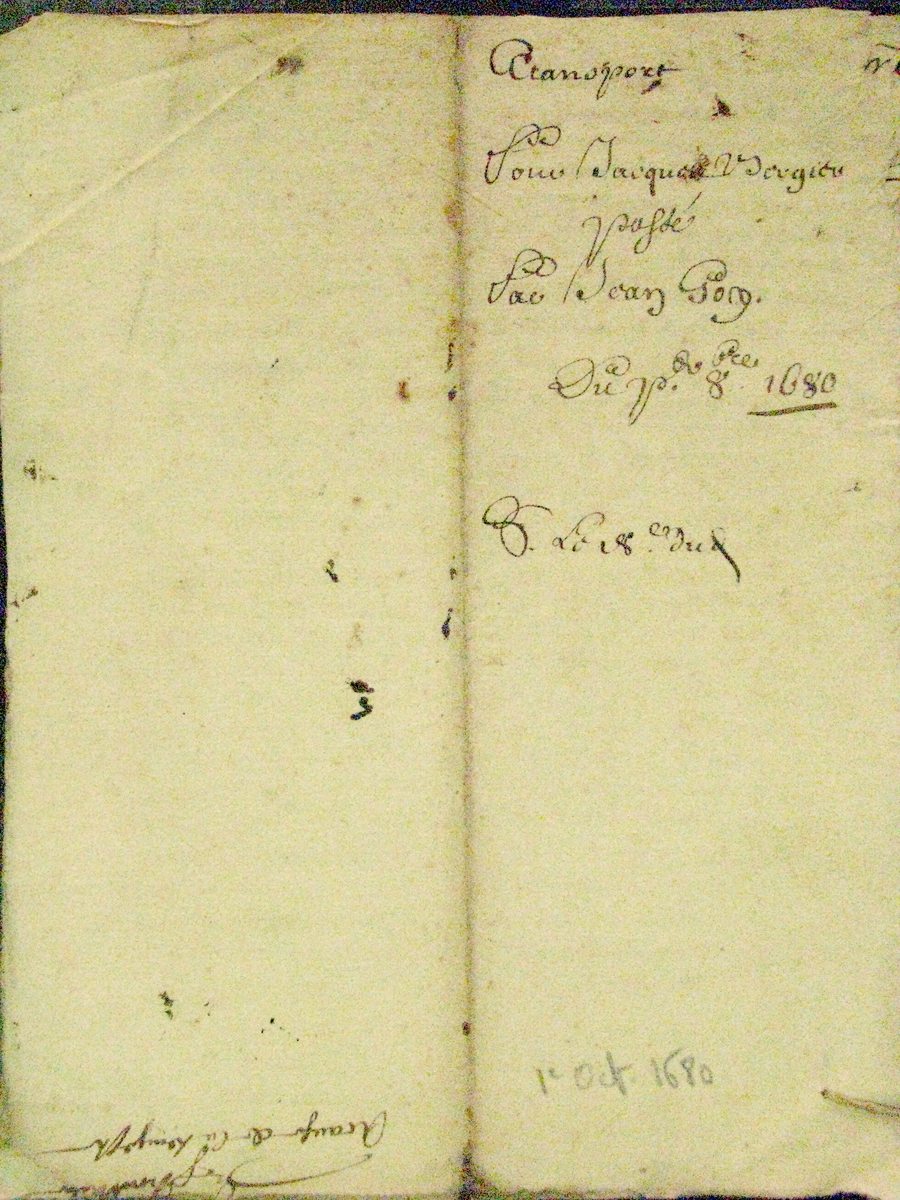 transport
Pour Jacques Vergier
passé
Par Jean Gocy.
Du p.er 8bre 1680
S. Le 18e dud
1e Oct. 1680